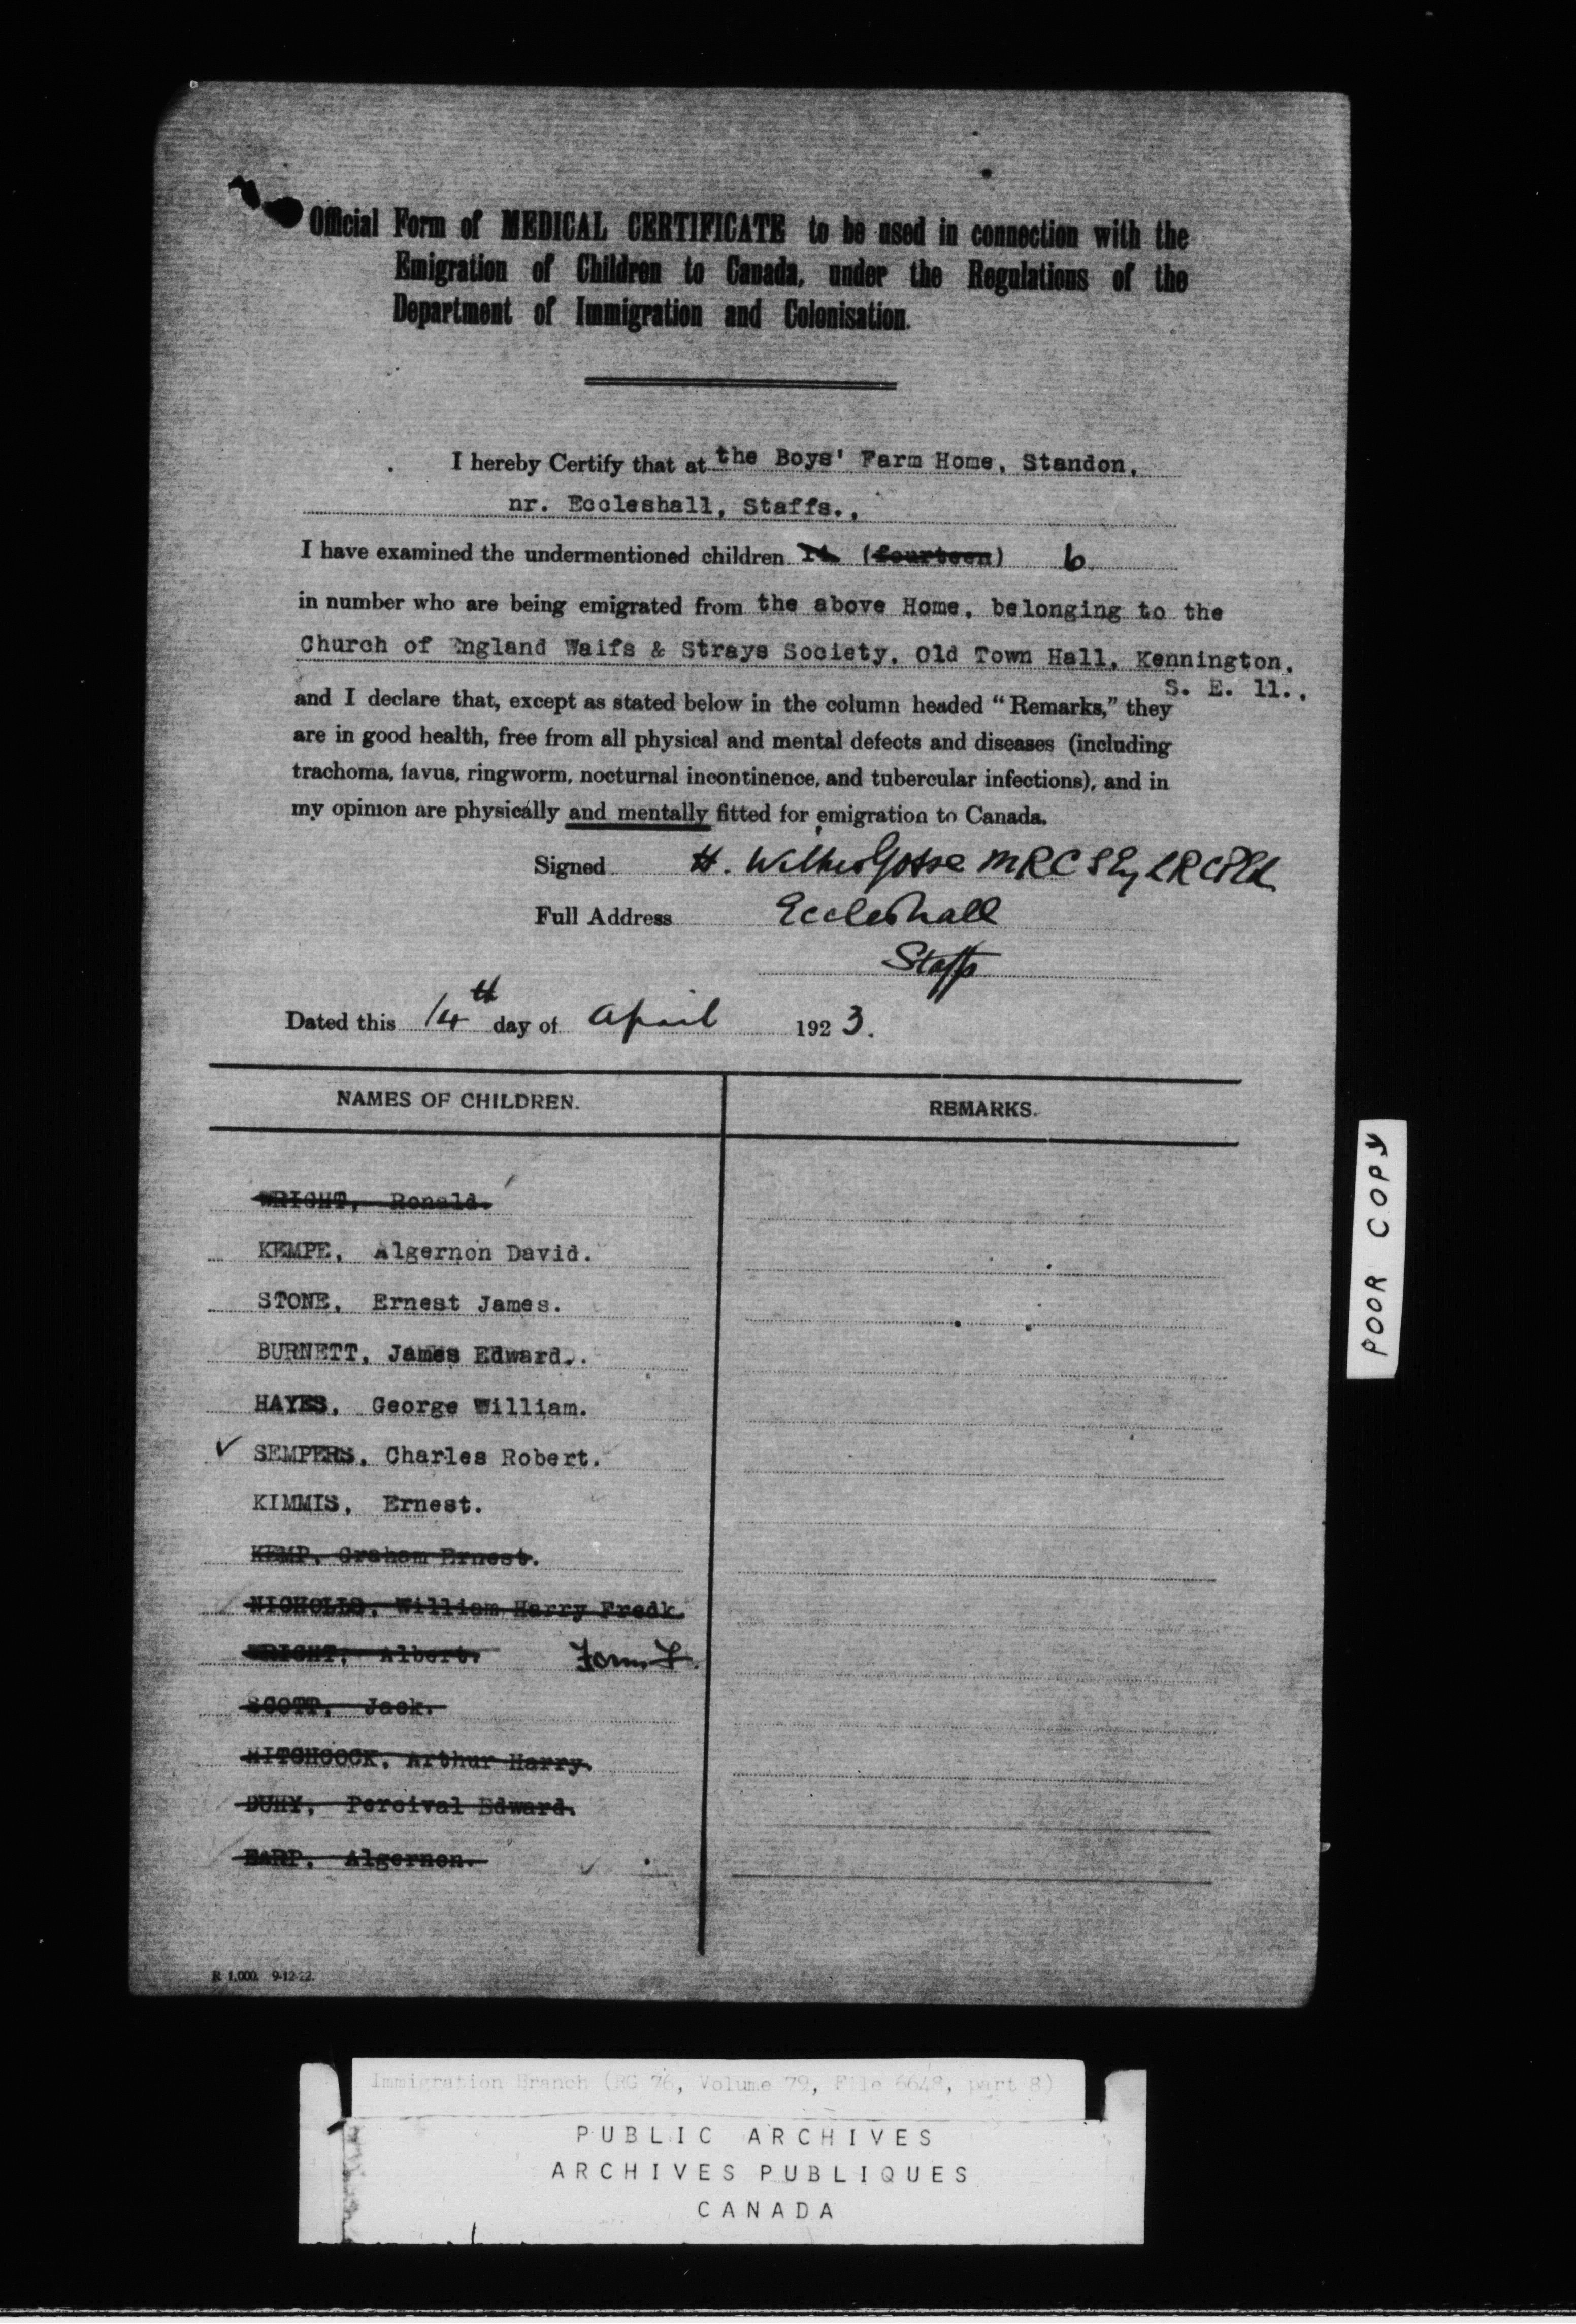 Official Form of MEDICAL CERTIFICATE to be used in connection with the
Emigration of Children to Canada, under the Regulations of the
Department of Immigration and Colonisation.
I hereby Certify that at the Boys' Farm Home, Standon,
nr. Eccleshall, Staffs.,
I have examined the undermentioned children 14 (fourteen) 6
in number who are being emigrated from the above Home, belonging to the
Church of England Waifs & Strays Society, Old Town Hall, Kennington,
S. E. 11.,
and I declare that, except as stated below in the column headed “Remarks,” they
are in good health, free from all physical and mental defects and diseases (including
trachoma, favus, ringworm, nocturnal incontinence, and tubercular infections), and in
my opinion are physically and mentally fitted for emigration to Canada.
Signed H. Gosse MRCS Eng LRCP Ed
Full Address Eccleshall
Staffs
Dated this 14th day of April 1923.
NAMES OF CHILDREN. REMARKS.
WRIGHT, Ronald.
KEMPE, Algernon David.
STONE, Ernest James.
BURNETT, James Edward.
HAYES, George William.
SEMPERS, Charles Robert.
KIMMIS, Ernest.
KEMP, Graham Ernest.
NICHOLLS, William Harry Fredk.
WRIGHT, Albert. Form F.
SCOTT, Jack.
HITCHCOCK, Arthur Harry.
Percival Edward.
EARP, Algernon.
R 1,000. 9-12-22.
POOR COPY
Immigration Branch (RG 76, Volume 79, File 6648, part 8)
PUBLIC ARCHIVES
ARCHIVES PUBLIQUES
CANADA